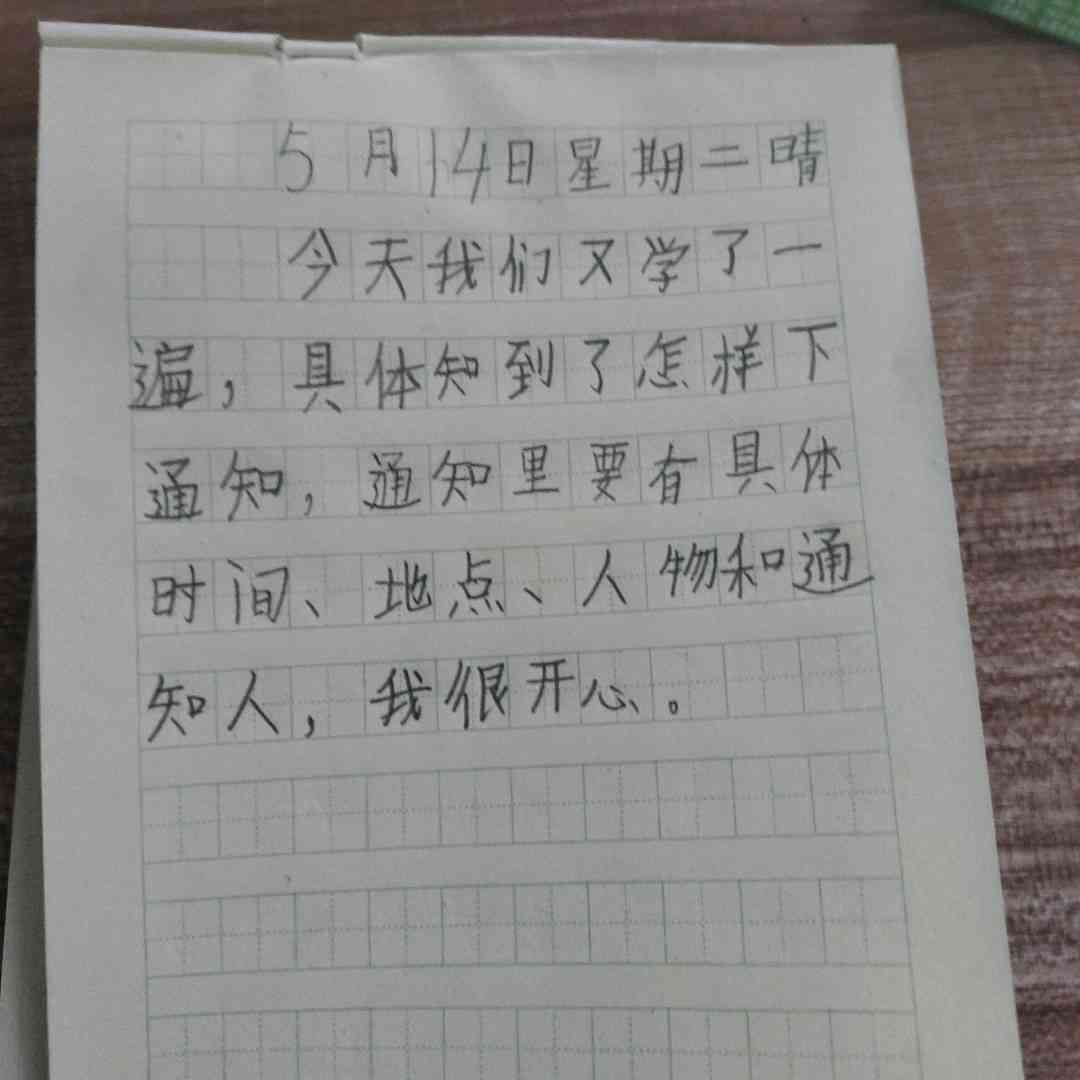 5月14日星期二晴
今天我们又学了一
遍，具体知到了怎样下
通知，通知里要有具体
时间、地点、人物和通
知人，我很开心。